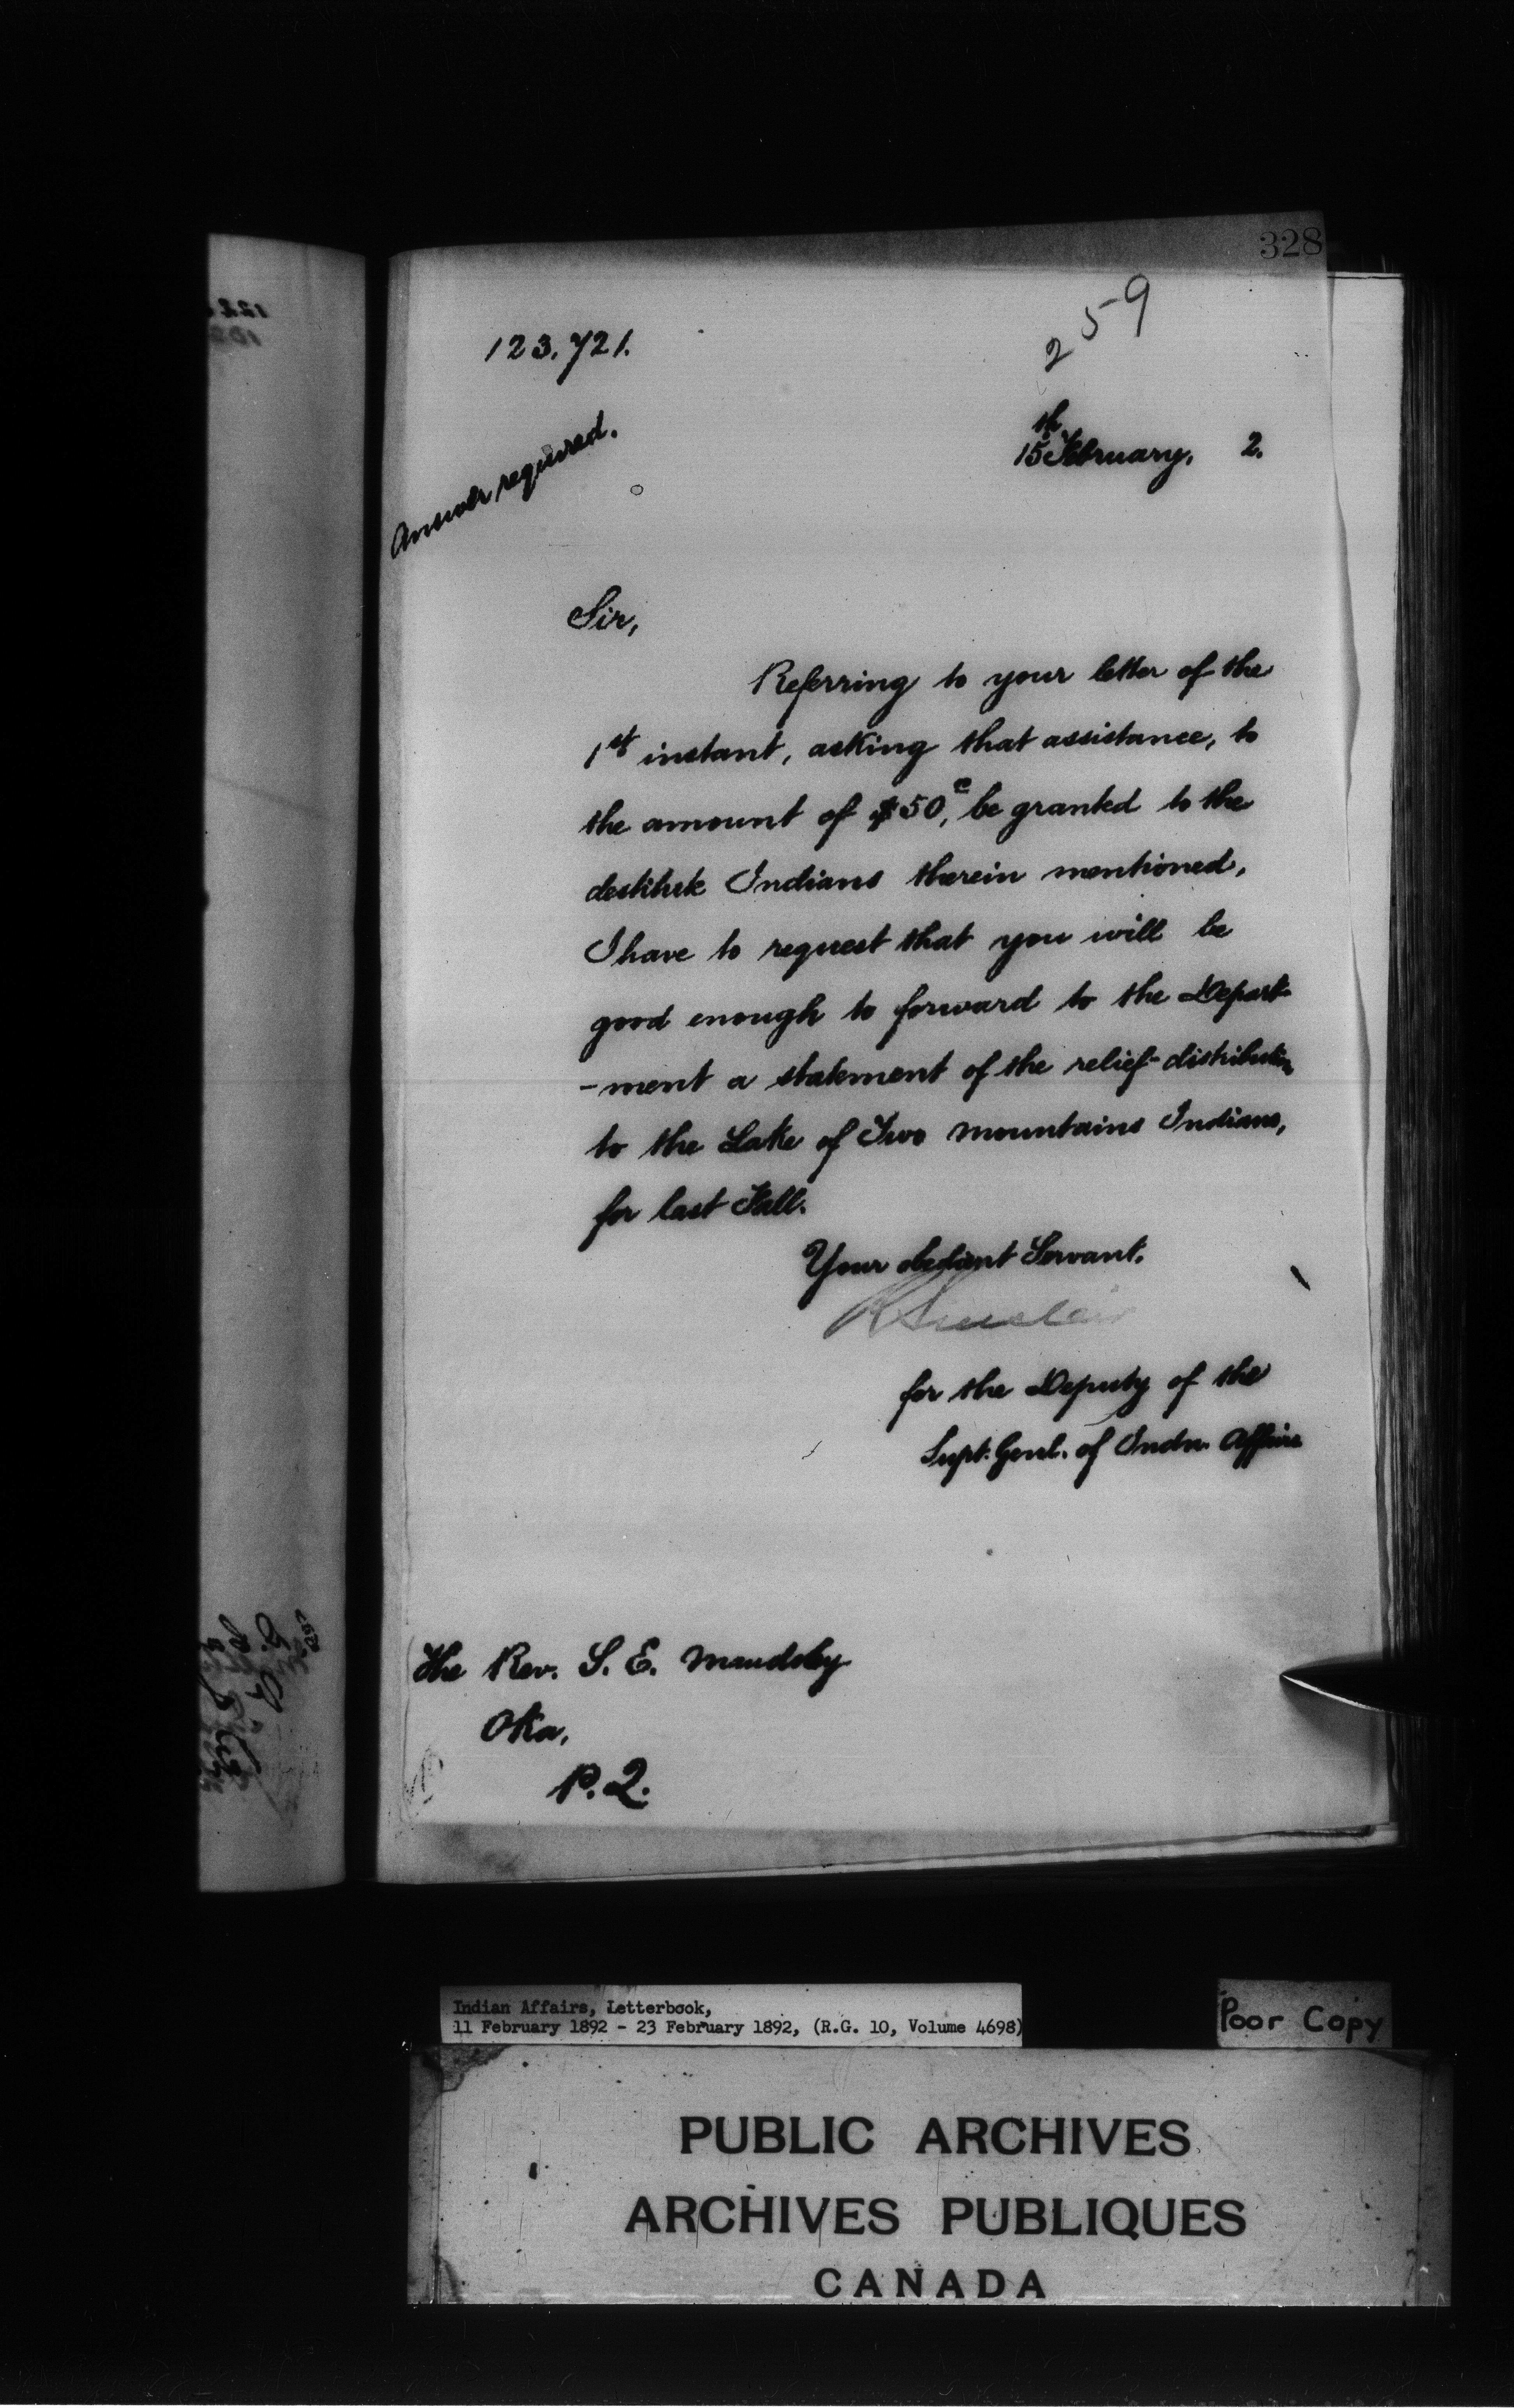 328
259
123,721.
15th February, 2.
Answer required.
Sir,
Referring to your letter of the
1st instant, asking that assistance, to
the amount of $50, be granted to the
destitute Indians therein mentioned,
I have to request that you will be
good enough to forward to the Depart-
-ment a statement of the relief-distribution
to the Lake of Two Mountains Indians,
for last Fall.
Your obedient Servant.
R Sinclair
for the Deputy of the
Supt. Genl. of Indn. Affairs
The Rev. S. E. Maudsley
Oka,
P.Q.
Indian Affairs, Letterbook,
11 February 1892 - 23 February 1892, (R.G. 10, Volume 4698)
Poor Copy
PUBLIC ARCHIVES
ARCHIVES PUBLIQUES
CANADA